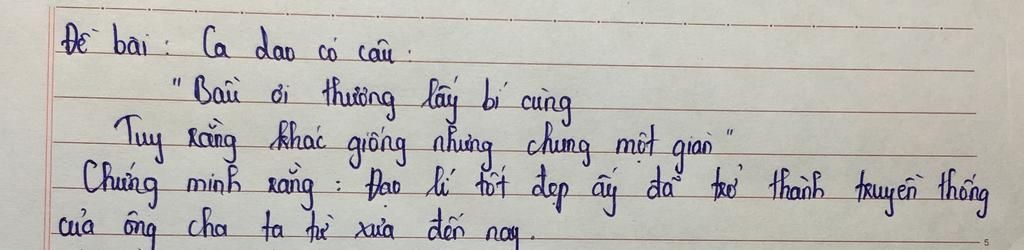 Đề bài: Ca dao có câu:
"Bầu ơi thương lấy bí cùng
Tuy rằng khác giống nhưng chung một giàn"
Chứng minh rằng: Đạo lí tốt đẹp ấy đã trở thành truyền thống
của ông cha ta từ xưa đến nay.
5